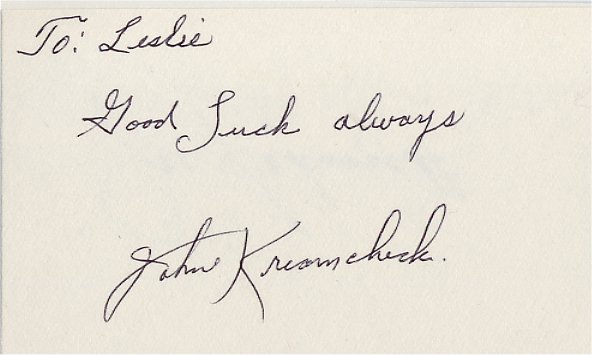 To: Leslie
Good Luck always
John Kreamcheck.